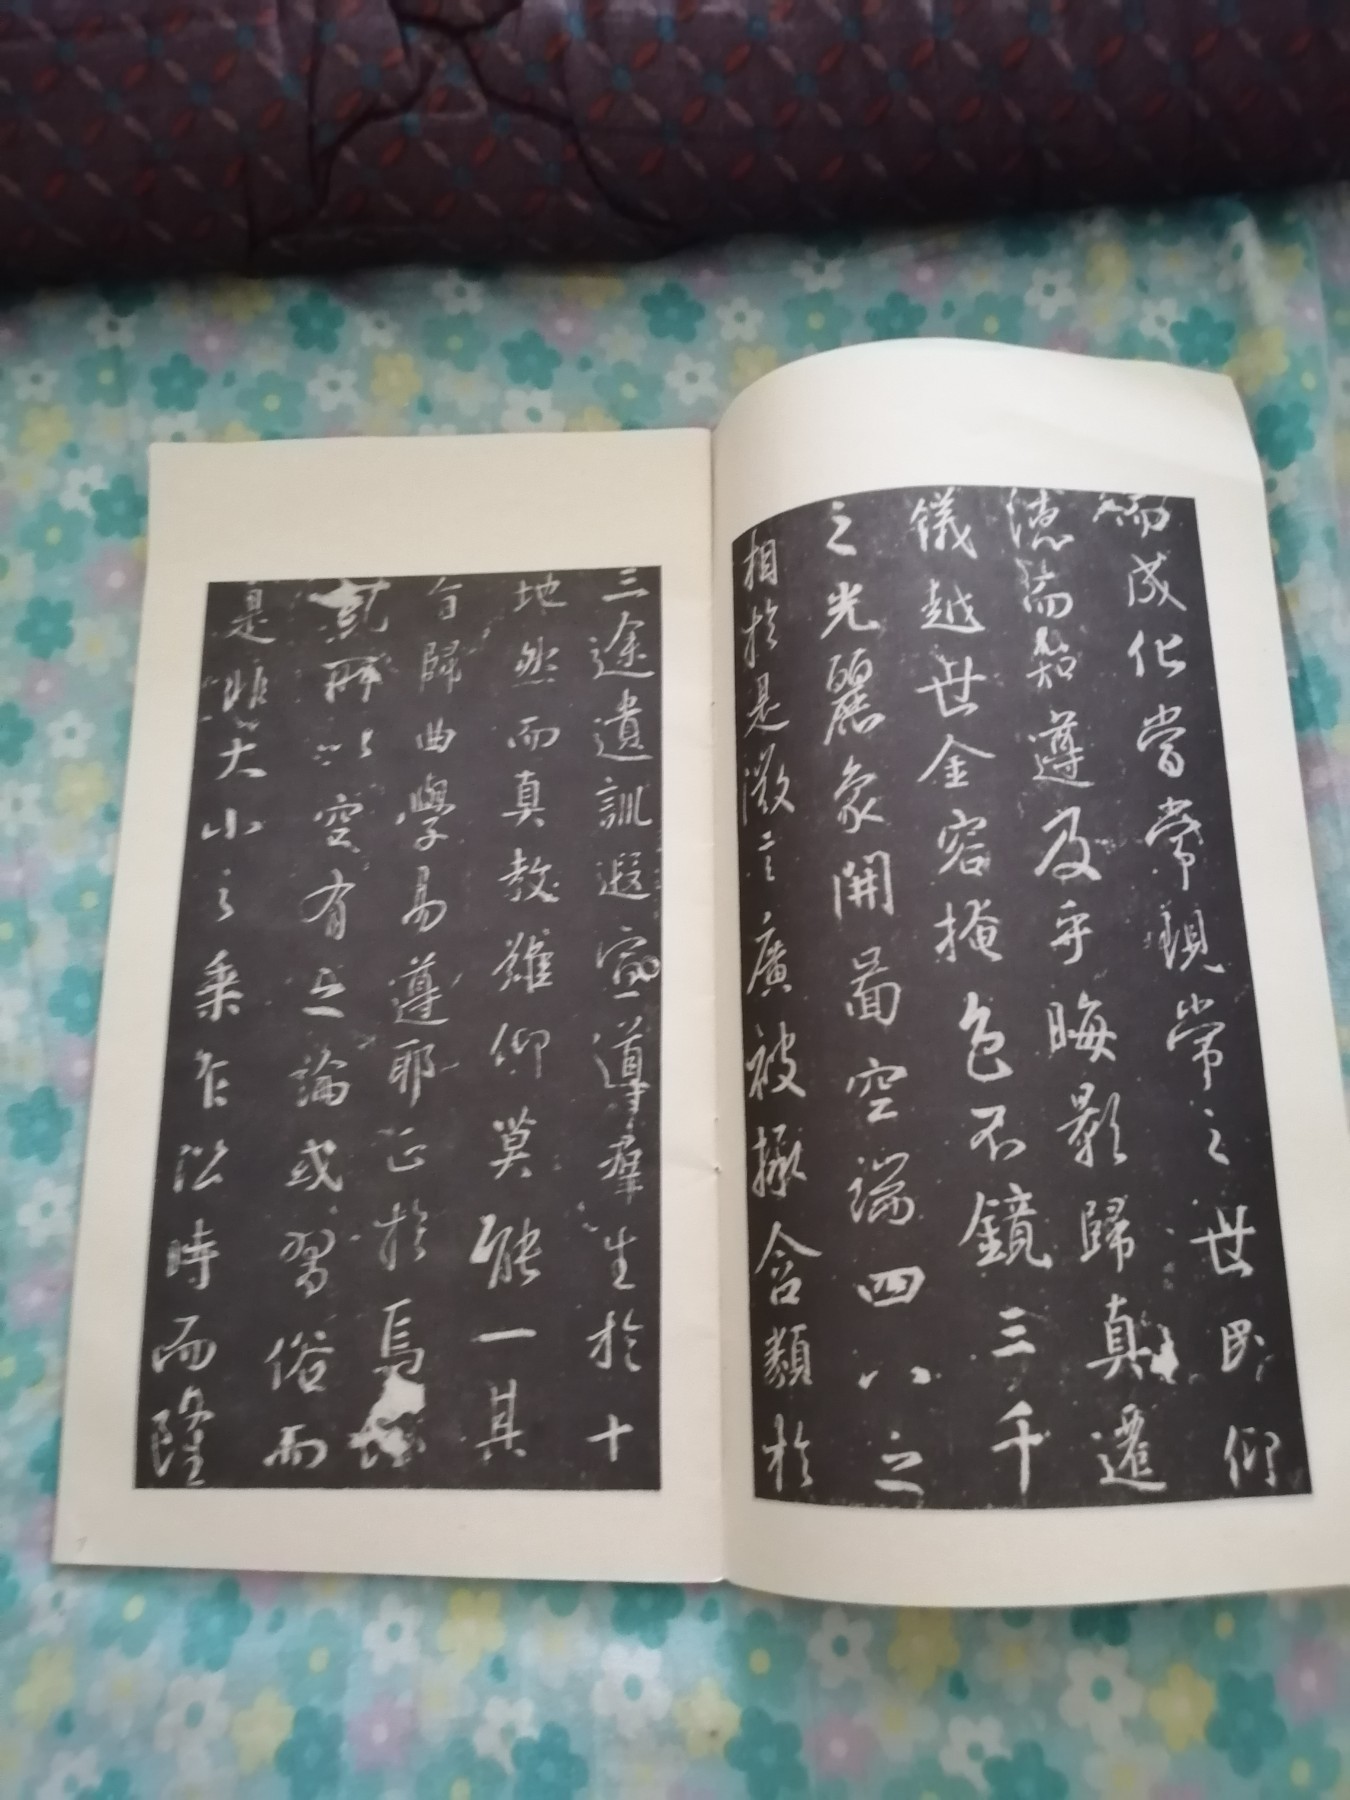 而成化當常現常之世民仰
德而知遵及乎晦影歸真遷
儀越世金容掩色不鏡三千
之光麗象開啚空端四八之
相於是微言廣被拯含類於
三途遺訓遐宣導群生於十
地然而真教難仰莫能一其
旨歸曲學易遵耶正於焉
所以空有之論或習俗而
是非大小之乘乍沿時而隆